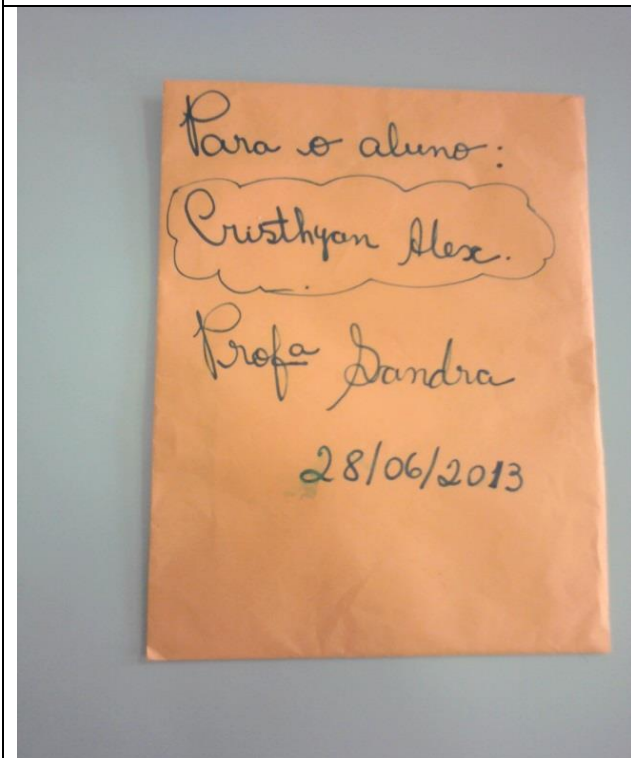 Para o aluno:
Cristhyan Alex.
Profª Sandra
28/06/2013